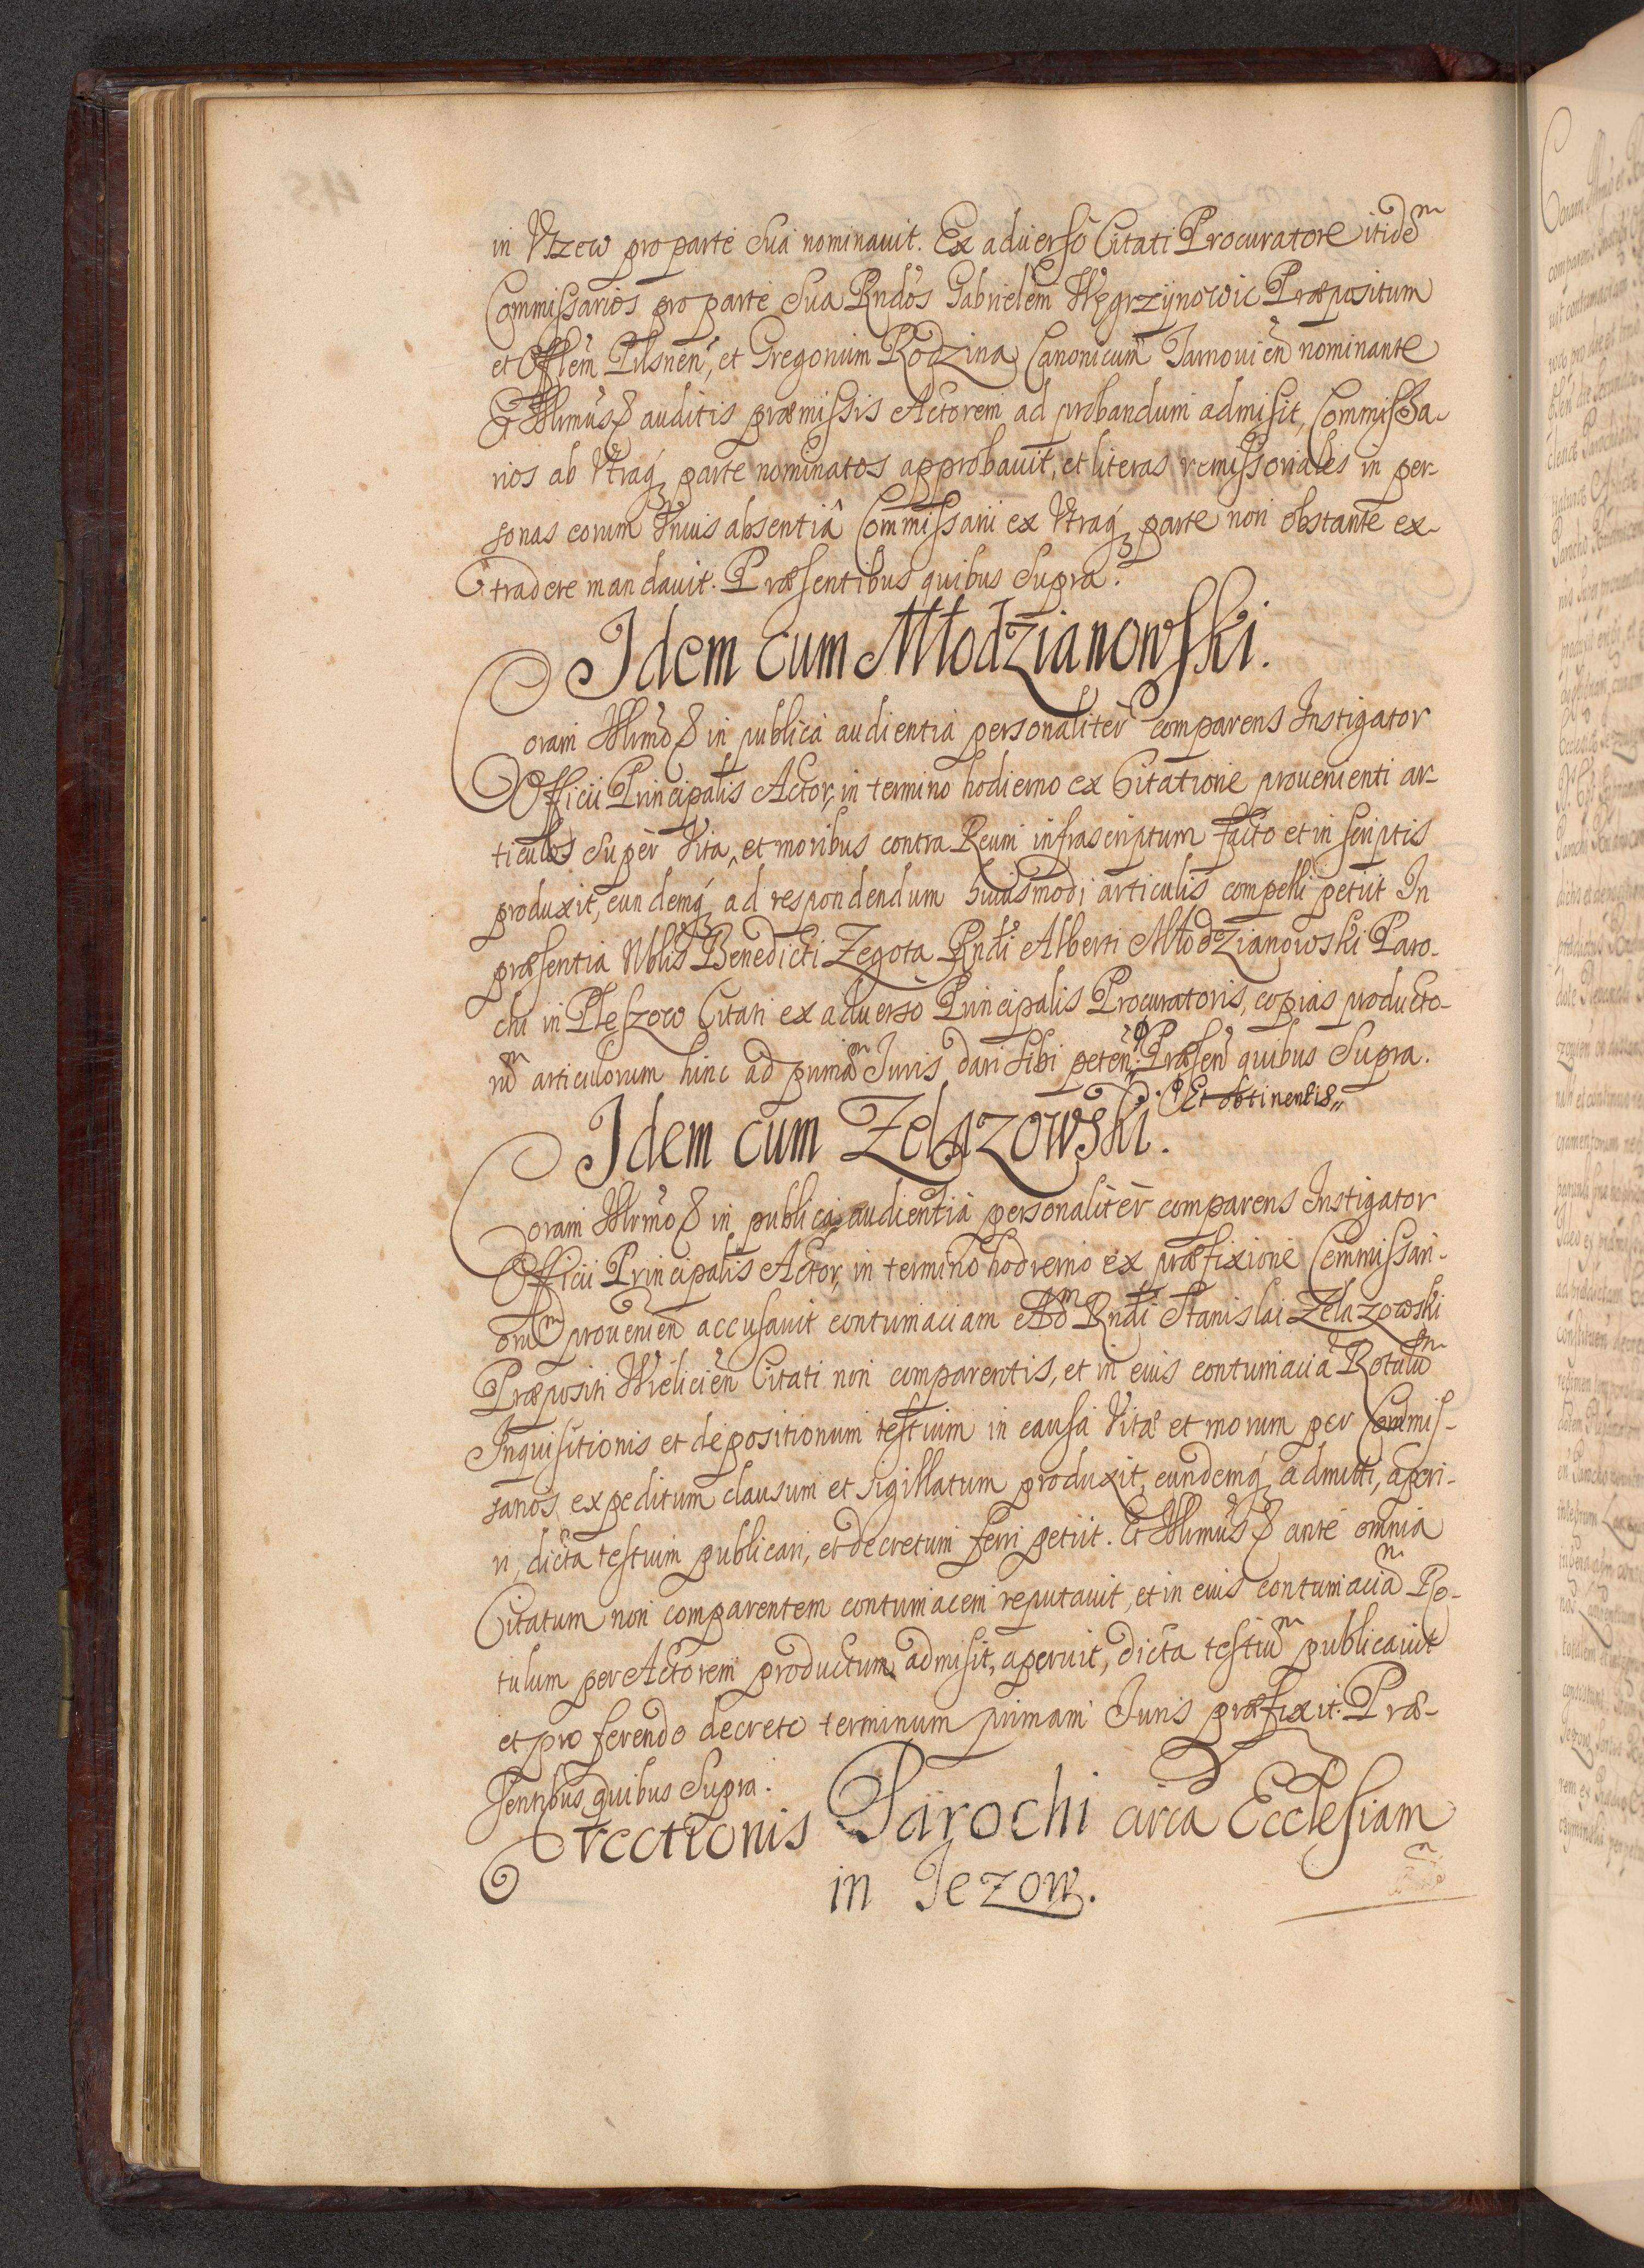 in Vtzew pro parte Sua nominauit. Ex aduerso Citati Procuratore itidem
Commissarios pro parte Sua Rndos Gabrielem Węgrzijnowic Præpositum
et Offlem Pilsnen, et Gregorium Rodzina Canonicum Tarnouien nominante
Et Illrmus auditis præmissis Actorem ad probandum admisit, Commissa-
rios ab Vtraq parte nominatos approbauit, et literas remissoriales in per-
sonas eorum Vnius absentiâ Commissarii ex Vtraq parte non obstante ex-
tradere mandauit. Præsentibus quibus Supra.
Idem cum Młodzianowski.
Coram Illrmo in publica audientia personaliter comparens Instigator
Officii Principalis Actor, in termino hodierno ex Citatione prouenienti ar-
ticulos super Vita, et moribus contra Reum infrascriptum facto et in scriptis
produxit, eundemq ad respondendum huiusmodi articulis compelli petiit In
præsentia Nblis Benedicti Zegota Rndi Alberti Młodzianowski Paro-
chi in Pleszow Citati ex aduerso Principalis Procuratoris, copias producto-
rum articulorum hinc ad primam Iuris dari sibi peten. Præsen quibus Supra.
Et obtinentis
Idem cum Zelazowski.
Coram Illrmo in publica audientia personaliter comparens Instigator
Officii Principalis Actor, in termino hodierno ex præfixione Commissari-
orum prouenien accusauit contumaciam Adm Rndi Stanislai Zelazowski
Præpositi Wielicien Citati non comparentis, et in eius contumacia Rotulum
Inquisitionis et depositionum testium in causa Vitæ et morum per Commis-
sarios expeditum clausum et sigillatum produxit, eundemq admitti, aperi-
ri, dicta testium publicari, et decretum ferri petiit. Et Illrmus ante omnia
Citatum non comparentem contumacem reputauit, et in eius contumaciam Ro-
tulum per Actorem productum admisit, aperuit, dicta testium publicauit
et pro ferendo decreto terminum primam Iuris præfixit. Præ-
sentibus quibus Supra.
Erectionis Parochi circa Ecclesiam
in Jezow.